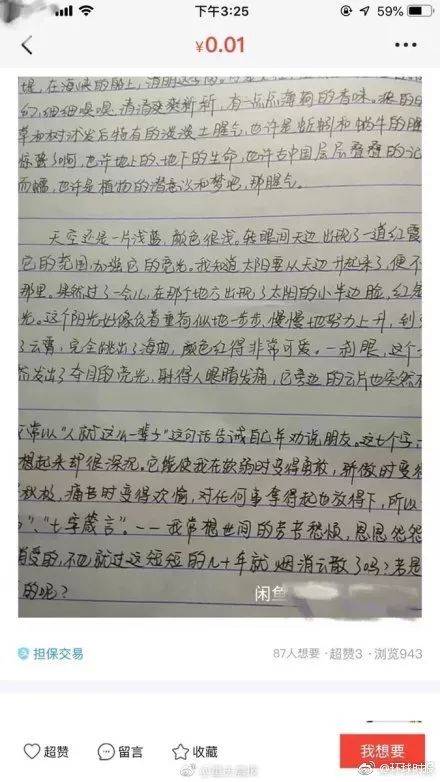 下午3:25
59%
¥0.01
堤,在海峡的船上,清明这
幻,细细嗅嗅,清清爽爽新新,有一点点薄荷的香味。浓的
草和树沐发后特有的淡淡土腥气,也许是蚯蚓和蜗牛的腥
惊蛰了啊,也许地上的地下的生命,也许古中国层层叠叠的记
而蠕,也许是植物的潜意识和梦吧,那腥气。
天空还是一片浅蓝,颜色很浅。转眼间天边出现了一道红霞
它的范围,加强它的亮光。我知道太阳要从天边升起来了,便不
那里。果然过了一会儿,在那个地方出现了太阳的小半边脸,红是
光。这个阳光好像负着重荷似地一步步,慢慢地努力上升,到
了云霄,完全跳出了海面,颜色红得非常可爱。一刹眼,这个
而发出了夺目的亮光,射得人眼睛发痛,它旁边的云片也突然
常以“人就这么一辈子”这句话告诫自己并劝说朋友。这七个字,
想起来却很深沉。它能使我在软弱时变得勇敢,骄傲时变得
积极,痛苦时变得欢愉,对任何事拿得起也放得下,所以
”、“七字箴言”。——我常想世间的劳苦愁烦,恩恩怨怨
消受的,不也就过这短短的几十年就烟消云散了吗?若是
的呢?
闲鱼
担保交易
87人想要 · 超赞3 · 浏览943
超赞
留言
收藏
我想要
@环球时报